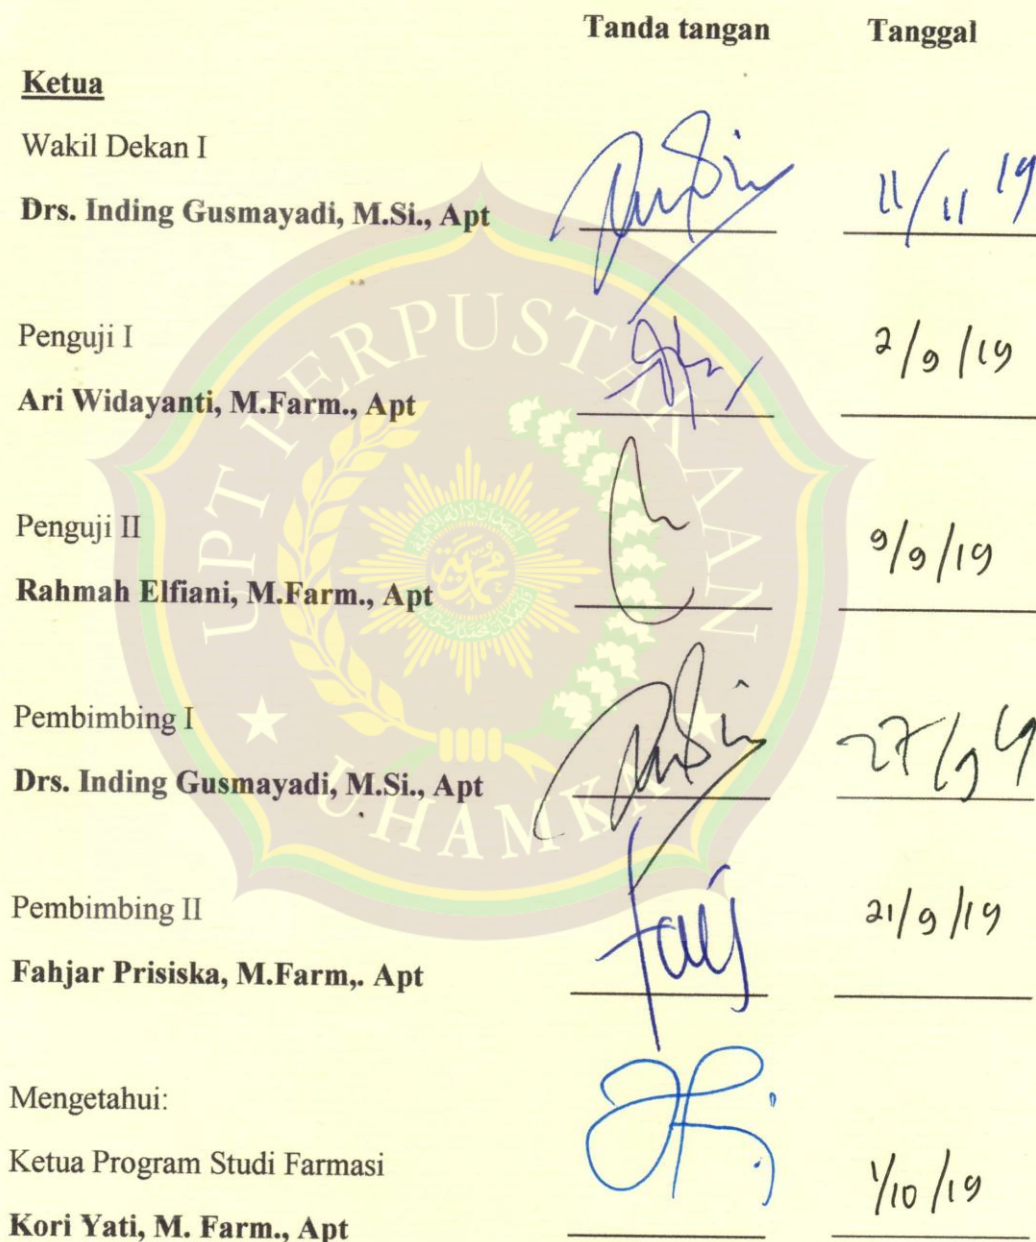 Tanda tangan Tanggal
Ketua
Wakil Dekan I
Drs. Inding Gusmayadi, M.Si., Apt 11/11 19
Penguji I 2/9/19
Ari Widayanti, M.Farm., Apt
Penguji II 9/9/19
Rahmah Elfiani, M.Farm., Apt
Pembimbing I 27/9 19
Drs. Inding Gusmayadi, M.Si., Apt
Pembimbing II 21/9/19
Fahjar Prisiska, M.Farm,. Apt
Mengetahui:
Ketua Program Studi Farmasi 1/10/19
Kori Yati, M. Farm., Apt
UPT PERPUSTAKAAN
UHAMKA